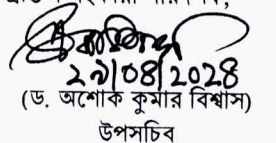 ২৯/০৪/২০২৪
(ড. অশোক কুমার বিশ্বাস)
উপসচিব